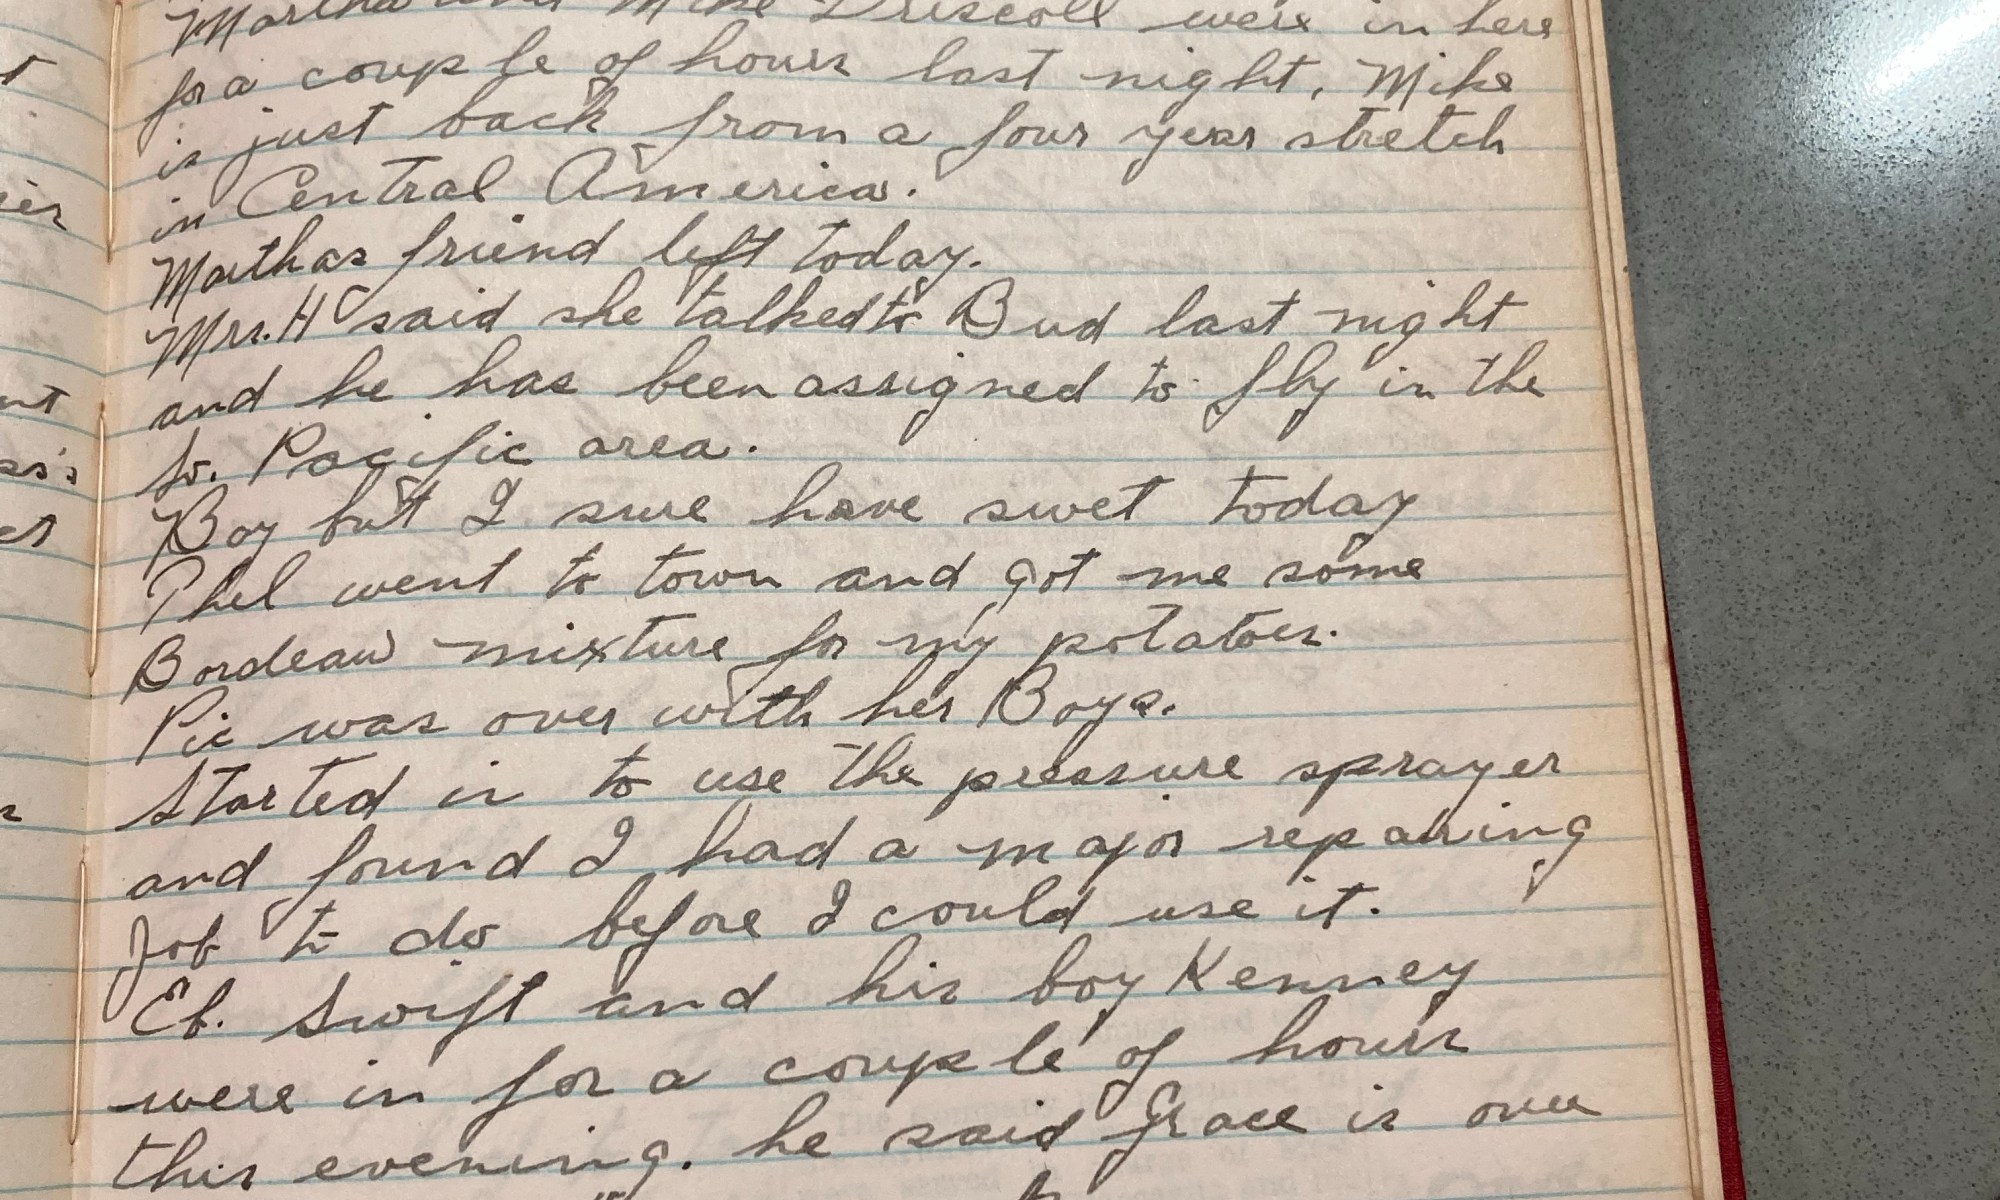 Martha and Mike Driscoll were in here
for a couple of hours last night, Mike
is just back from a four year stretch
in Central America.
Marthas friend left today.
Mrs. H said she talked to Bud last night
and he has been assigned to fly in the
So. Pacific area.
Boy but I sure have swet today
Phel went to town and got me some
Bordeau mixture for my potatoes.
Pic was over with her Boys.
Started in to use the pressure sprayer
and found I had a major repairing
Job to do before I could use it.
Eb. Swift and his boy Kenney
were in for a couple of hours
this evening. he said Grace is over